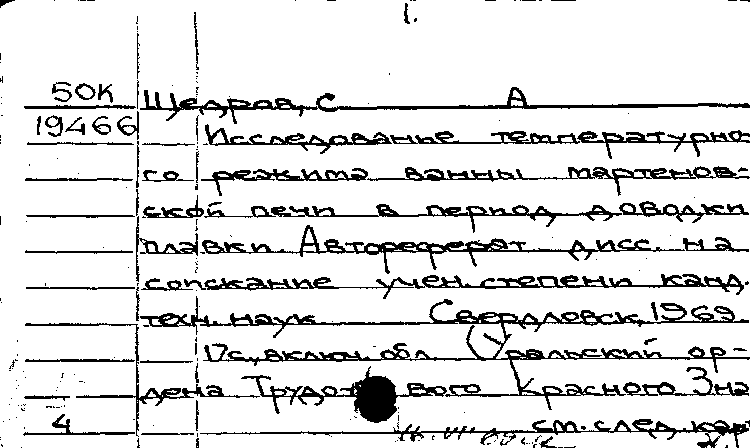 1.
50К Щедров, С А
19466 Исследование температурно-
го режима ванны мартенов-
ской печи в период доводки
плавки. Автореферат дисс. на
соискание учен. степени канд.
техн. наук Свердловск, 1969.
17с., включ. обл. (Уральский ор-
дена Трудо вого Красного Зна
4 см. след. кар